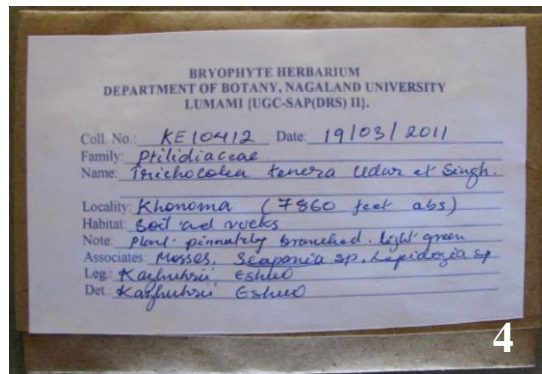 BRYOPHYTE HERBARIUM
DEPARTMENT OF BOTANY, NAGALAND UNIVERSITY
LUMAMI [UGC-SAP(DRS) II].
Coll. No.: KE10412 Date: 19/03/2011
Family: Ptilidiaceae
Name: Trichocolea tenera Udar et Singh.
Locality: Khonoma (7860 feet abs)
Habitat: Soil and rocks
Note: Plant pinnately branched. light green
Associates: Mosses, Scapania sp, Lepidozia sp
Leg: Kazhuhrii Eshuo
Det.: Kazhuhrii Eshuo
4